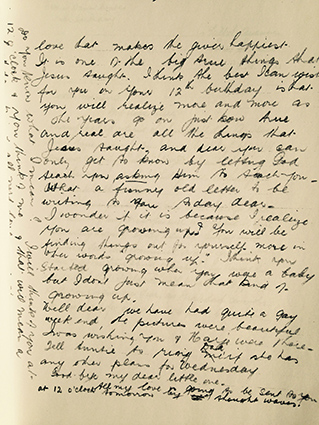 love that makes the giver happiest.
It is one of the big true things that
Jesus taught. I think the best I can wish
for you on your 12th birthday is that
you will realize more and more as
the years go on just how true
and real are all the things that
Jesus taught, and dear you can
only get to know by letting God
teach you asking Him to teach you-
What a funny old letter to be
writing to you today dear-
I wonder if it is because I realize
you are growing up? You will be
finding things out for yourself more in
other words growing up. I think you
started growing when you were a baby
but I dont just mean that kind of
growing up.
Well dear we have had quite a gay
week end, the pictures were beautiful
I was wishing you & were there-
Tell Auntie to ring if she has
any other plans for Wednesday
Good bye my dear little one.
All my love is going to be sent to you
at 12 o'clock tomorrow by thought waves.
do you know what I mean?
12 o'clock